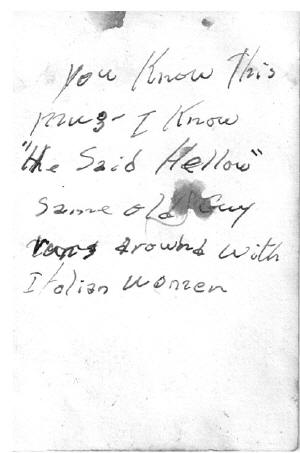 You Know This
mug - I Know
"He Said Hellow"
Same old Guy
runs around with
Italian women